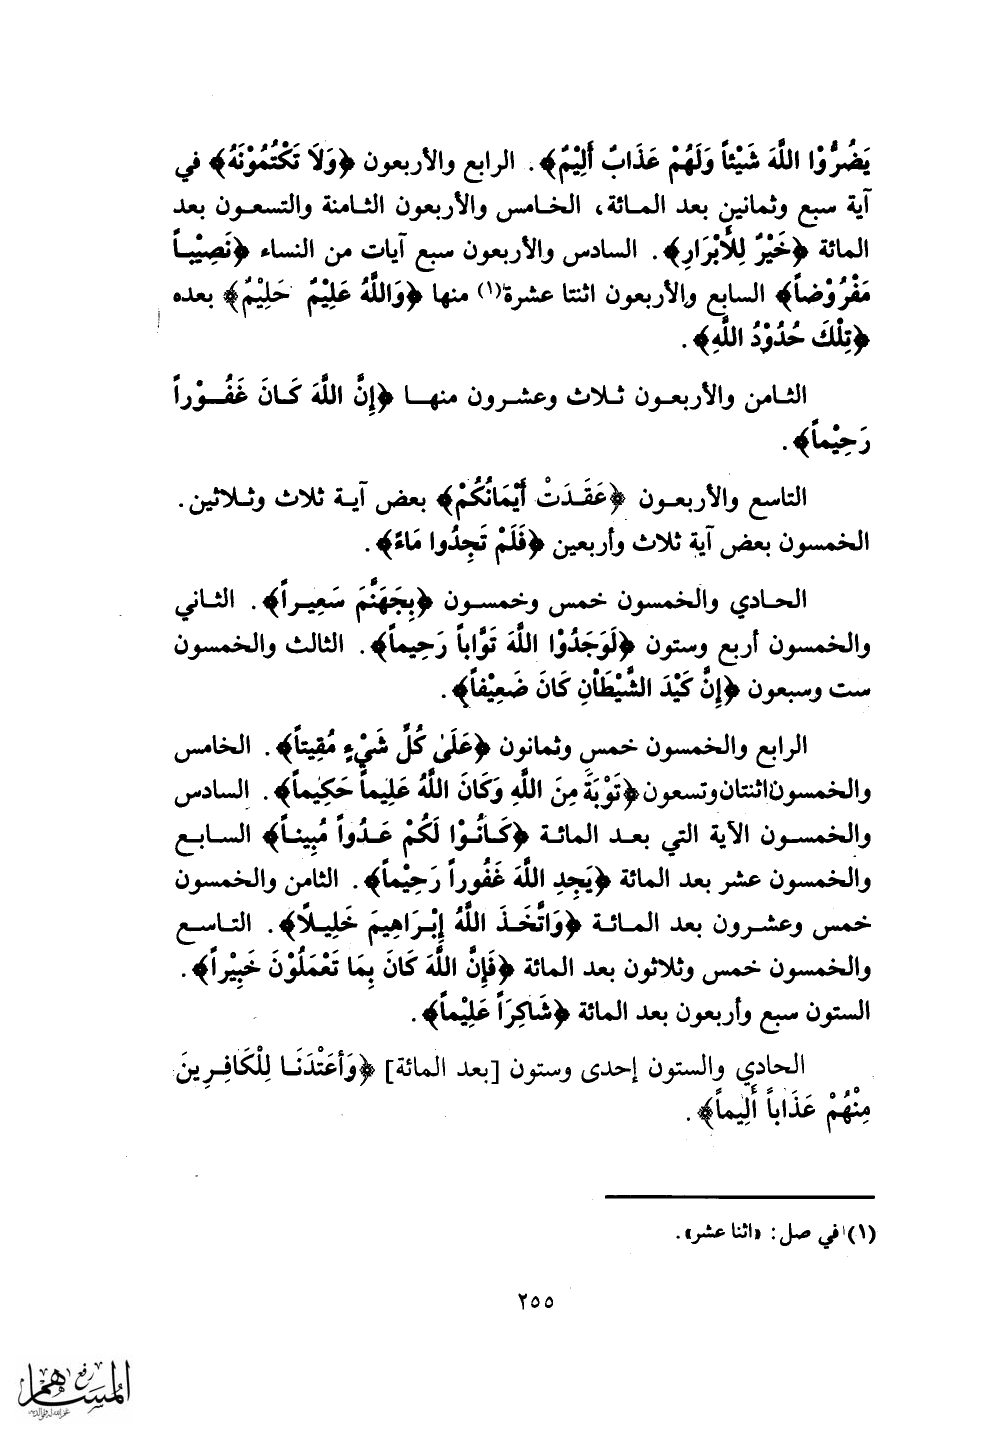 يَضُرُّوْا اللَّهَ شَيْئاً وَلَهُمْ عَذَابٌ أَلِيْمٌ﴾. الرابع والأربعون ﴿وَلَا تَكْتُمُوْنَهُ﴾ في
آية سبع وثمانين بعد المائة، الخامس والأربعون الثامنة والتسعون بعد
المائة ﴿خَيْرٌ لِلْأَبْرَارِ﴾. السادس والأربعون سبع آيات من النساء ﴿نَصِيْبـاً
مَفْرُوْضاً﴾ السابع والأربعون اثنتا عشرة(١) منها ﴿وَاللَّهُ عَلِيْمٌ حَلِيْمٌ﴾ بعده
﴿تِلْكَ حُدُوْدُ اللَّهِ﴾.
الثامن والأربعون ثلاث وعشرون منها ﴿إِنَّ اللَّهَ كَانَ غَفُـوْراً
رَحِيْماً﴾.
التاسع والأربعون ﴿عَقَدَتْ أَيْمَانُكُمْ﴾ بعض آية ثلاث وثلاثين.
الخمسون بعض آية ثلاث وأربعين ﴿فَلَمْ تَجِدُوا مَاءً﴾.
الحادي والخمسون خمس وخمسون ﴿بِجَهَنَّمَ سَعِيـراً﴾. الثاني
والخمسون أربع وستون ﴿لَوَجَدُوْا اللَّهَ تَوَّاباً رَحِيماً﴾. الثالث والخمسون
ست وسبعون ﴿إِنَّ كَيْدَ الشَّيْطَاْنِ كَانَ ضَعِيْفاً﴾.
الرابع والخمسون خمس وثمانون ﴿عَلَىٰ كُلِّ شَيْءٍ مُقِيتاً﴾. الخامس
والخمسون اثنتان وتسعون ﴿تَوْبَةً مِنَ اللَّهِ وَكَانَ اللَّهُ عَلِيماً حَكِيْماً﴾. السادس
والخمسون الآية التي بعد المائة ﴿كَـانُـوْا لَكُمْ عَـدُواً مُبِيناً﴾ السابع
والخمسون عشر بعد المائة ﴿يَجِدِ اللَّهَ غَفُوراً رَحِيْماً﴾. الثامن والخمسون
خمس وعشرون بعد المائة ﴿وَاتَّخَـذَ اللَّهُ إِبْـرَاهِيمَ خَلِيـلًا﴾. التاسع
والخمسون خمس وثلاثون بعد المائة ﴿فَإِنَّ اللَّهَ كَانَ بِمَا تَعْمَلُوْنَ خَبِيْراً﴾.
الستون سبع وأربعون بعد المائة ﴿شَاكِرَاً عَلِيْماً﴾.
الحادي والستون إحدى وستون [بعد المائة] ﴿وَأعَتْدَنَـا لِلْكَافِـرِينَ
مِنْهُمْ عَذَاباً أَلِيماً﴾.
(١) في صل: «اثنا عشر».
٢٥٥
رفع
المساهم